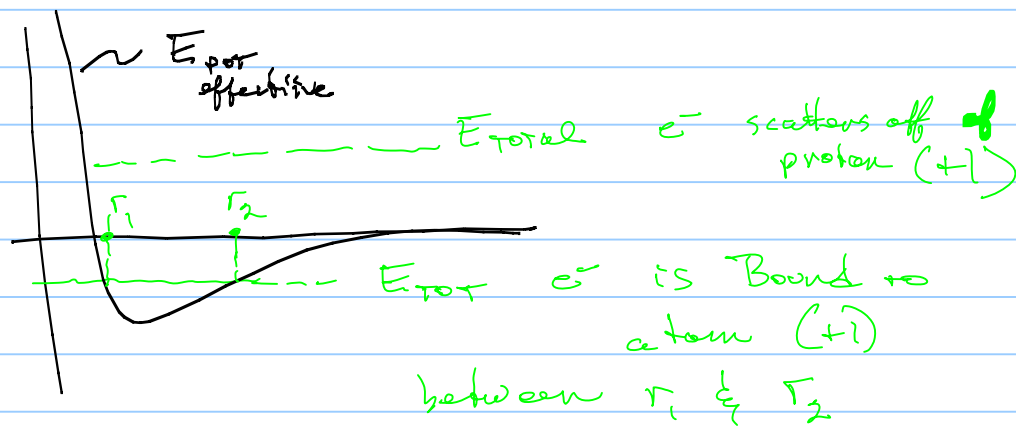 E pot
effective
E TOTAL e⁻ scatters off
proton (+1)
r₁ r₂
E TOT e⁻ is Bound to
atom (+1)
between r₁ & r₂